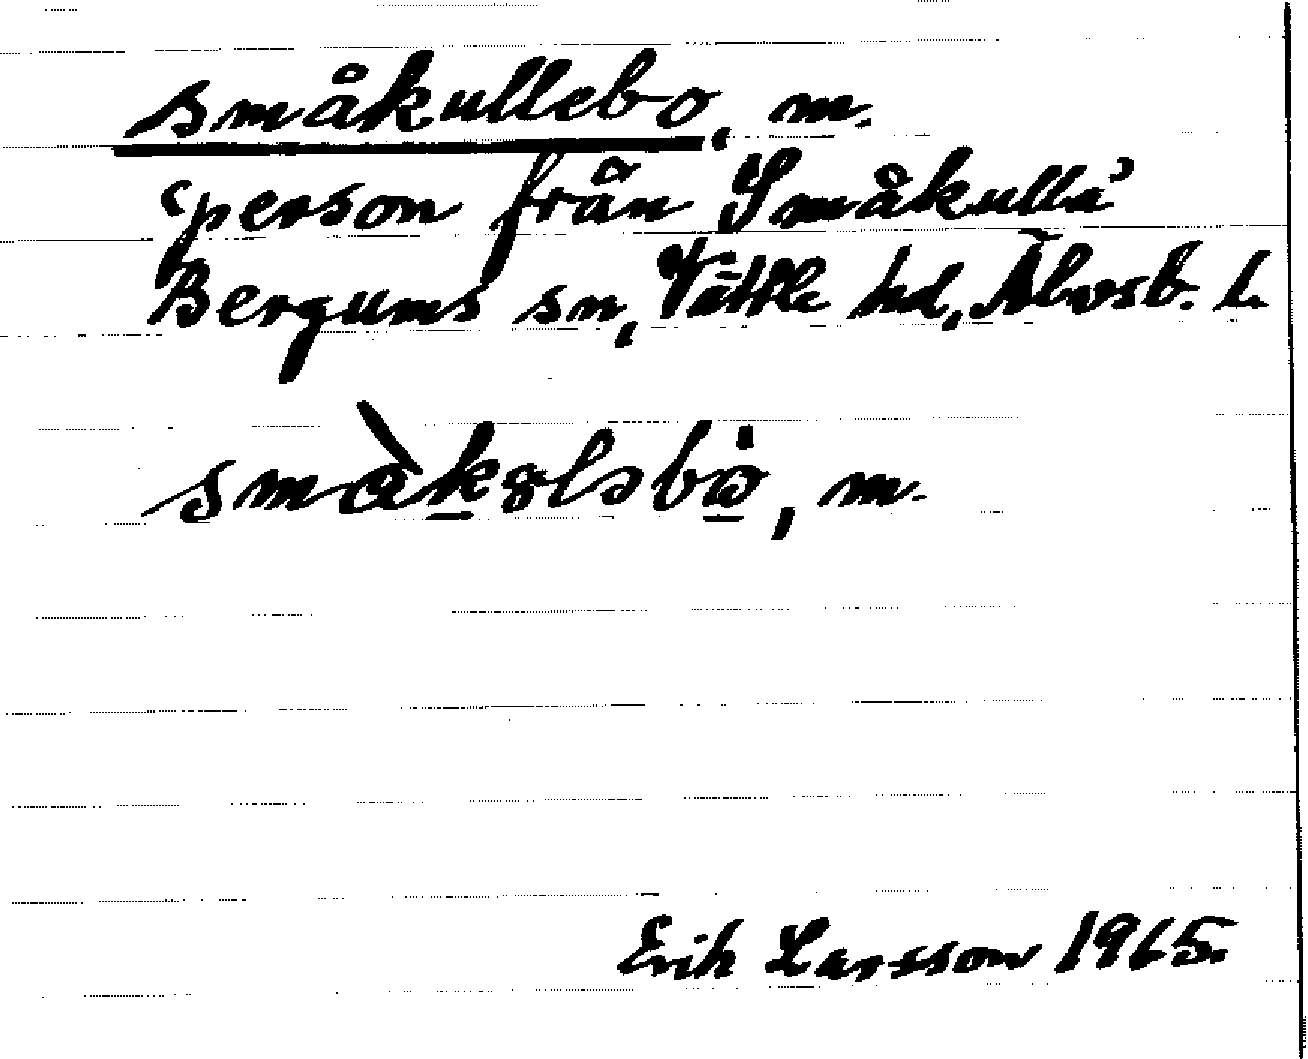 småkullebo, m.
'person från Småkulla'
Bergums sn, Vättle hd, Älvsb. l.
smàkɷləbò, m.
Erik Larsson 1965.